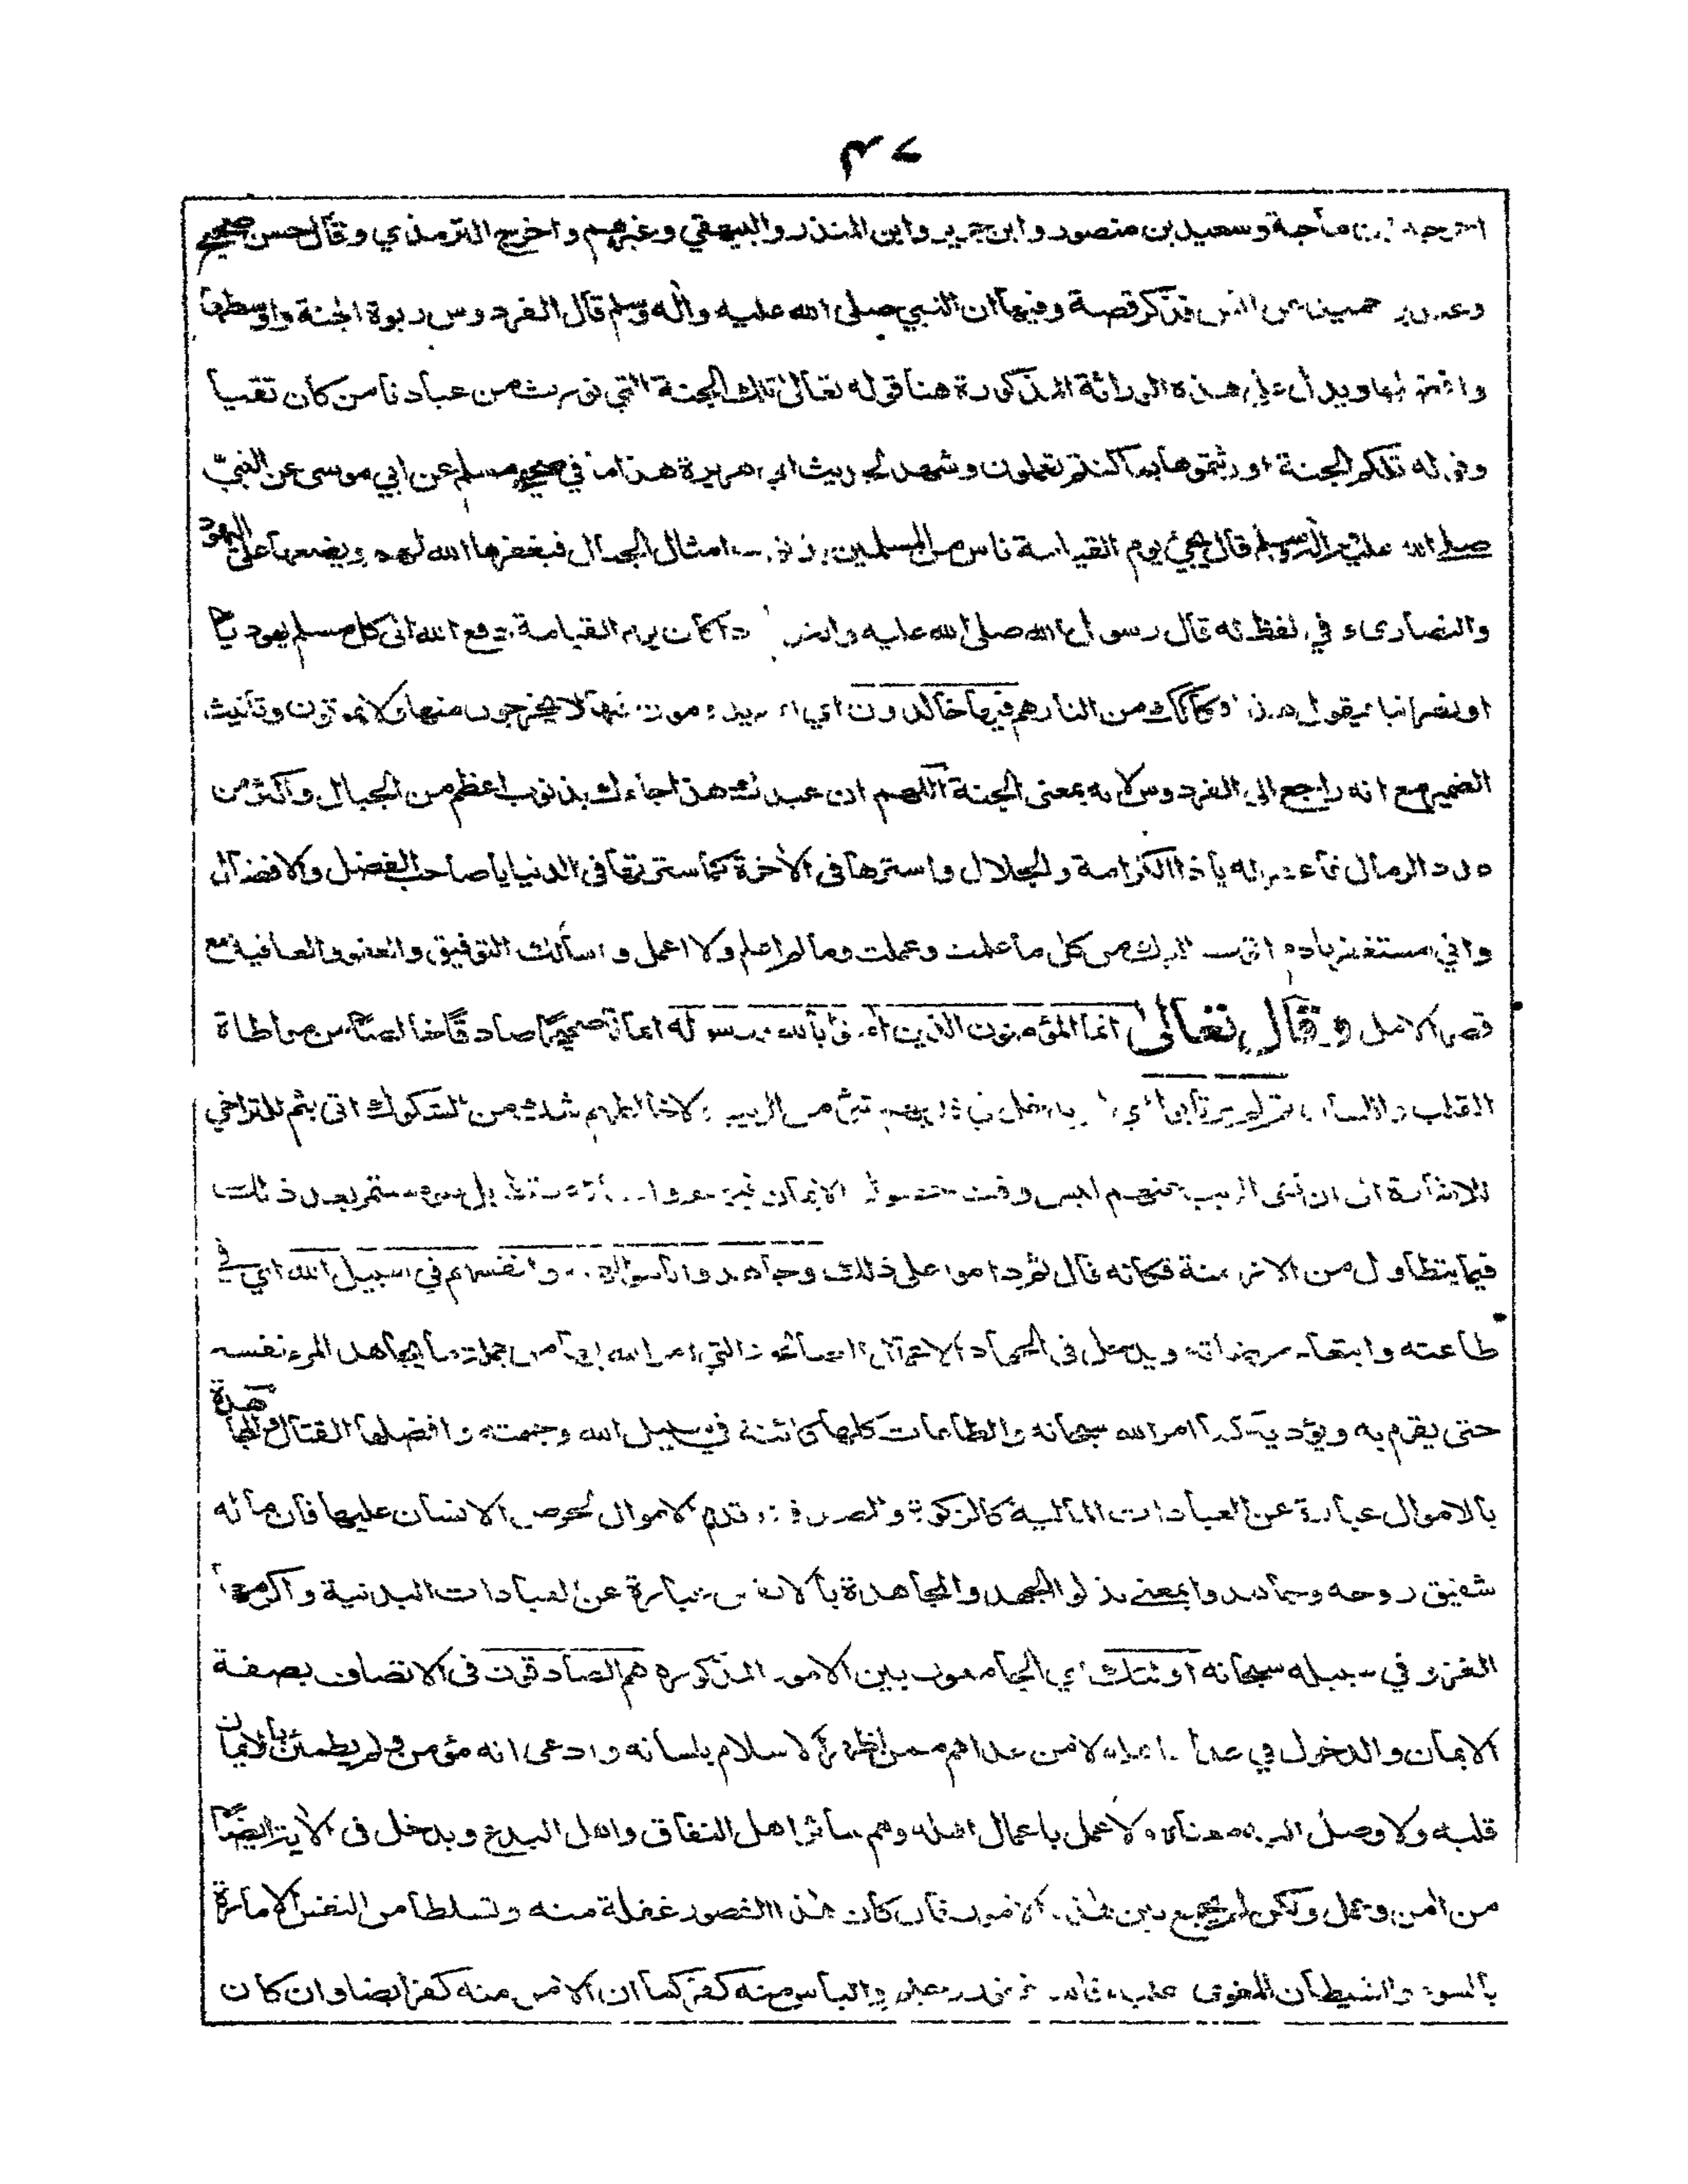 ٤٧
ماجة وسعيد بن منصور وابن جرير وابن المنذر والبيهقي وغيرهم واخرج الترمذي وقال حسن صحيح
وعبد بن حميد عن انس فذكر قصة وفيها ان النبي صلى الله عليه واله وسلم قال الفردوس ربوة الجنة واوسطها
وافضلها ويدل على هذه الوراثة المذكورة هنا قوله تعالى تلك الجنة التي نورث من عبادنا من كان تقيا
وقوله تلكم الجنة اورثتموها بما كنتم تعملون وشهد لحديث ابي هريرة هذا ما في صحيح مسلم عن ابي موسى عن النبيّ
صلى الله عليه واله وسلم قال يجيئ يوم القيامة ناس من المسلمين بذنوب امثال الجبال فيغفرها الله لهم ويضعها على اليهود
والنصارى وفي لفظ له قال رسول الله صلى الله عليه واله اذا كان يوم القيامة دفع الله الى كل مسلم يهوديا
او نصرانيا فيقول هذا فكاكك من النار هم فيها خالدون اي لا يخرجون منها ولا يموتون وتأنيث
الضمير مع انه راجع الى الفردوس لانه بمعنى الجنة اللهم ان عبدك هذا جاءك بذنوب اعظم من الجبال واكثر من
عدد الرمال يا ذا الكرامة والجلال واسترها فى الأخرة كما سترتها فى الدنيا يا صاحب الفضل والافضال
واني مستغفر من كل ما علمت وعملت وما لم اعلم ولا اعمل واسألك التوفيق والعفو والعافية مع
قصر الامل وقال تعالى انما المؤمنون الذين امنوا بالله ورسوله ايمانا صحيحا صادقا خالصا من مواطاة
القلب واللسان ثم لم يرتابوا اي لم يدخل في قلوبهم شيئ من الريب ولا خالطهم شك من الشكوك اتى بثم للتراخي
للاشارة الى ان نفي الريب عنهم ليس وقت حصول الايمان فيه بل هو مستمر بعد ذلك
فيما يتطاول من الازمنة فكانه قال ثم داموا على ذلك وجاهدوا باموالهم وانفسهم في سبيل الله اي في
طاعته وابتغاء مرضاته ويدخل فى الجهاد الاعمال الصالحة التي امر الله بها من جملة ما يجاهد المرء نفسه
حتى يقوم به ويؤديه كما امر الله سبحانه والطاعات كلها كائنة في سبيل الله وجهته وافضلها القتال والمجاهدة
بالاموال عبارة عن العبادات المالية كالزكوة والصدقة وقدم الاموال لحرص الانسان عليها فان ماله
شقيق روحه وجاهدوا بمعنى بذلوا الجهد والمجاهدة بالانفس عبارة عن العبادات البدنية واكرمها
الغزو في سبيله سبحانه اولئك اي الجامعون بين الامور المذكورة هم الصادقون فى الاتصاف بصفة
الايمان والدخول في عداد اهله لا من عداهم ممن اظهر الاسلام بلسانه وادعى انه مؤمن ولم يطمئن بالايمان
قلبه ولا وصل اليه معناه ولا عمل باعمال اهله وهم سائر اهل النفاق واهل البدع ويدخل فى الأية ايضا
من امن وعمل ولكن لم يجمع بين هذه الامور فان كان هذا القصور غفلة منه وتسلطا من النفس الامارة
بالسوء والشيطان المغوى واليأس منه كفر كما ان الامن منه كفر ايضا وان كان